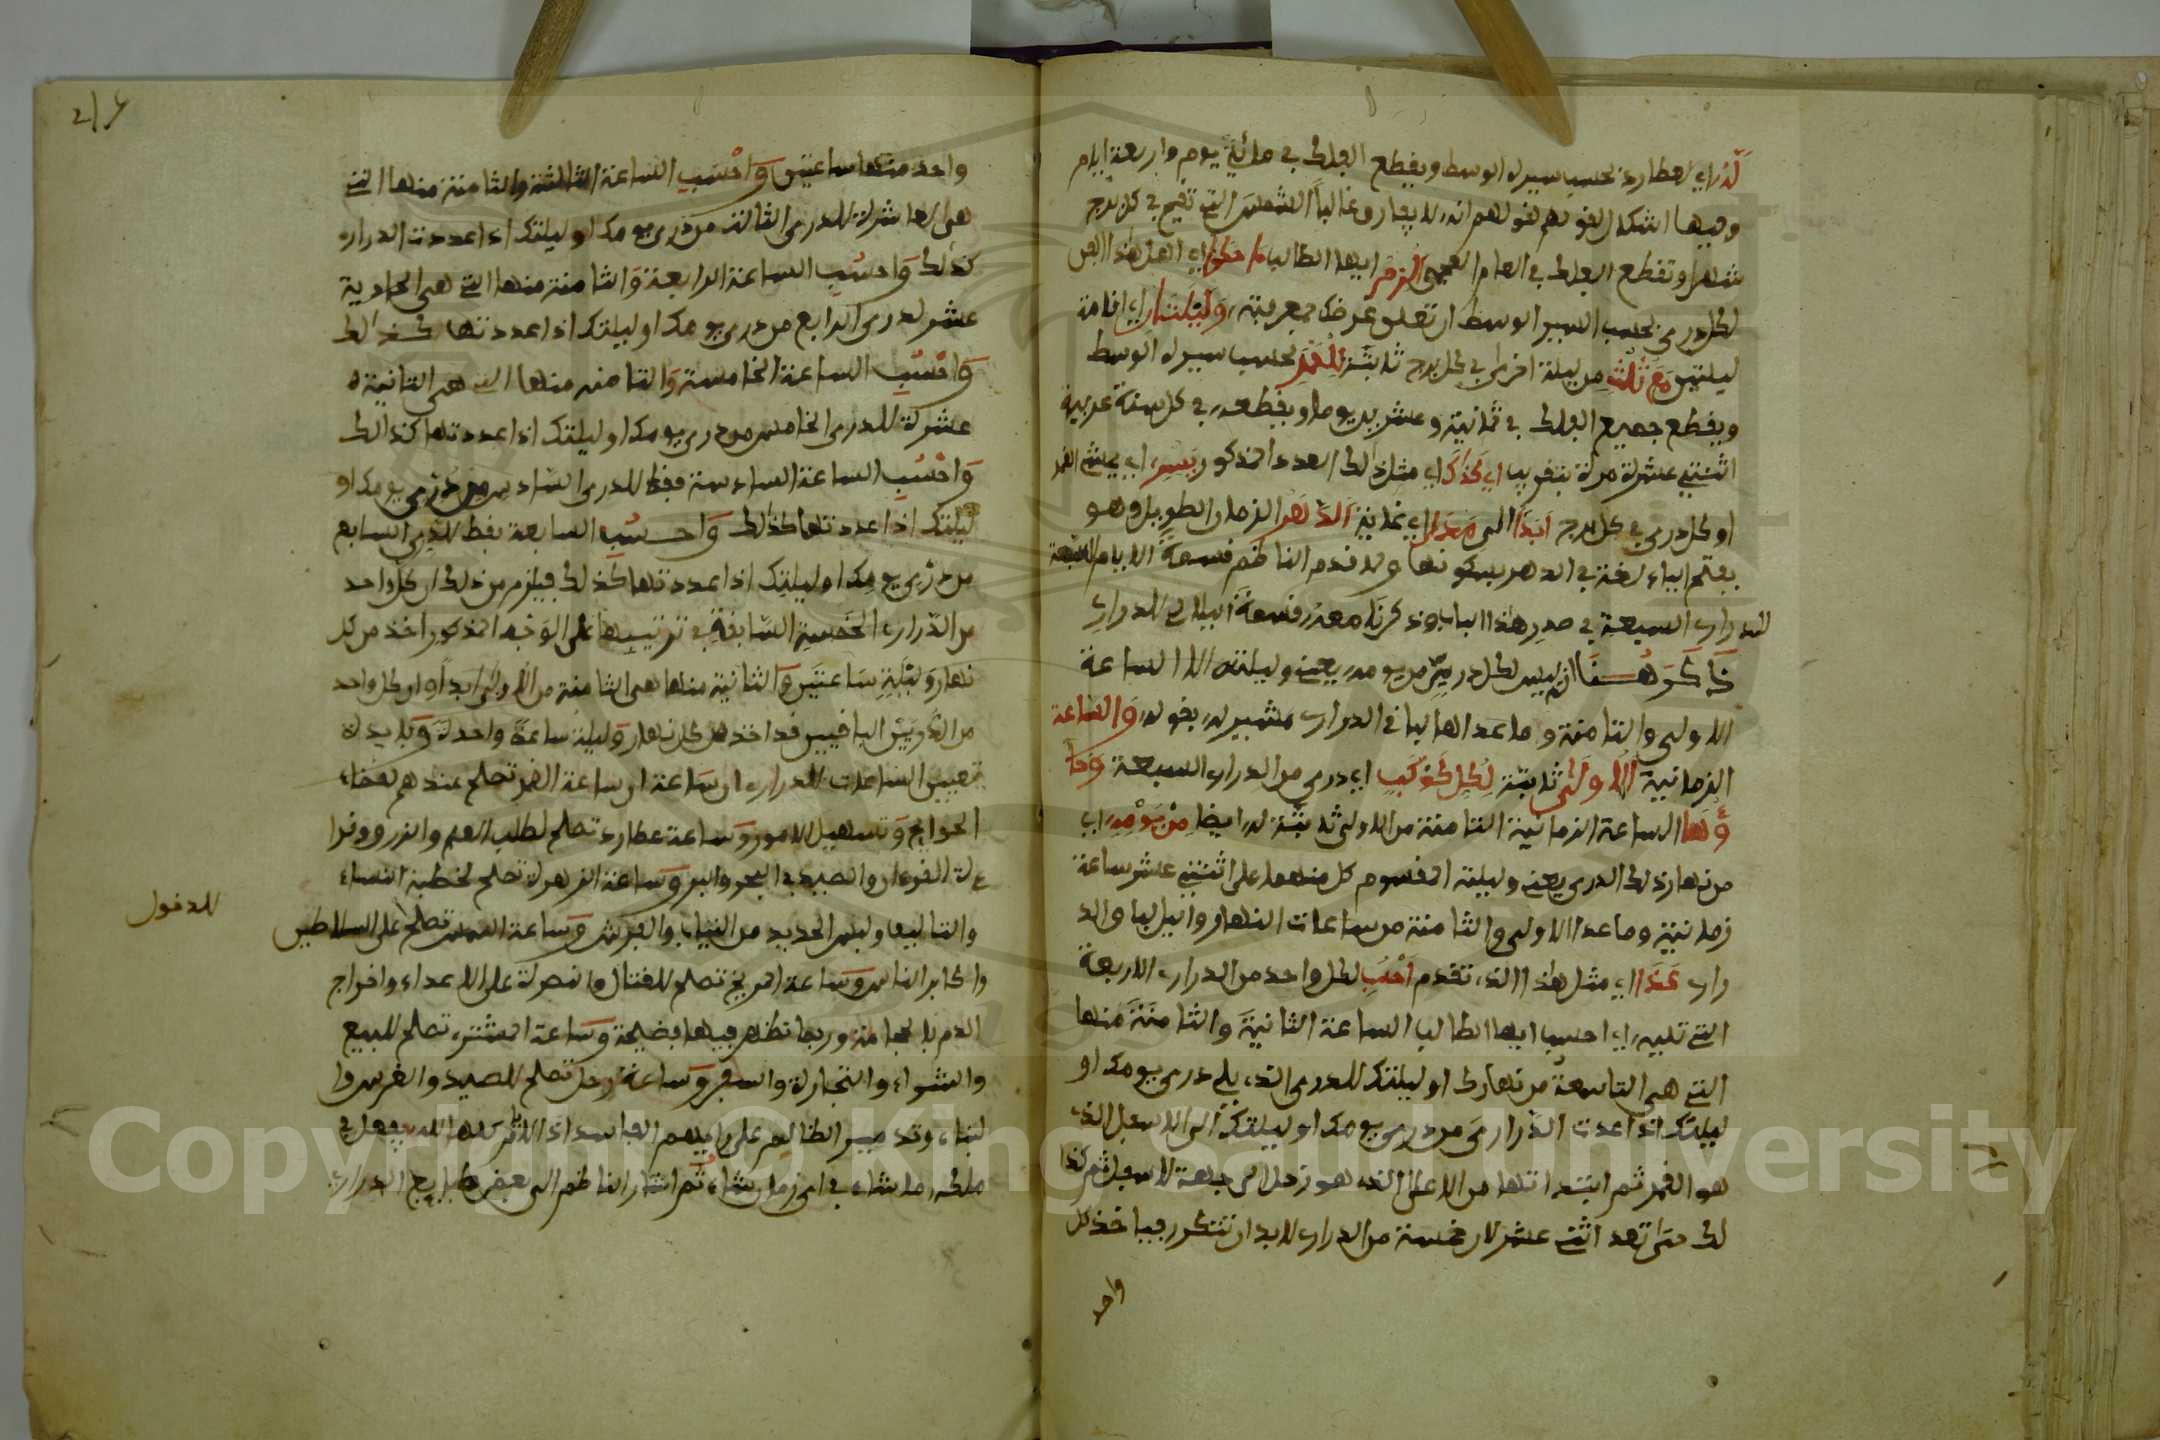 لَهُ اي لعطارد بحسب سيره الوسط ويقطع الفلك في مائية يوم واربعة ايام
وفيها اشكال لقولهم انه لا يفارق غالبا الشمس التي تقيم في كل برج
شهرا وتقطع الفلك في العام العجمي الزم ايها الطالب ما حكوا اي اهل هذا الفن
لكل دري بحسب السير الوسط ان تعلق غرضك بمعرفته وليلتان اي اقامة
ليلتين مع ثلث من ليلة اخرى في كل برج ثابتة للقمر بحسب سيره الوسط
ويقطع جميع الفلك في ثمانية وعشرين يوما ويقطعه في كل سنة عربية
اثنتي عشرة مرة بتقريب اي كذا اي مثل ذلك العدد المذكور يسر اي يمشي القمر
او كل دري في كل برج ابدا الى مدى اي نهاية الدهر الزمان الطويل وهو
بفتح الهاء لغة في الدهر بسكونها ولما قدم الناظم قسمة الايام السبعة
للدراري السبعة في صدر هذا الباب وذكرنا معه قسمة الليالي للدراري
ذكر هنا انه ليس لكل دري من يومه يعني وليلته الا الساعة
الاولى والثامنة وما عداها لباقي الدراري مشيرا له بقوله والساعة
الزمانية الاولى ثابتة لكل كوكب اي دري من الدراري السبعة وثا
منها الساعة الزمانية الثامنة من الاولى ثابتة له ايضا من يومه اي
من نهار ذلك الدري يعني وليلته المقسوم كل منهما على اثنتي عشر ساعة
زمانية وما عدا الاولى والثامنة من ساعات النهار والليل لباقي الد
راري كذا اي مثل هذا الذي تقدم احسب لكل واحد من الدراري الاربعة
التي تليه اي احسب ايها الطالب الساعة الثانية والثامنة منها
التي هي التاسعة من نهارك او ليلتك للدري الذي يلي دري يومك او
ليلتك اذا عددت الدراري من دري يومك او ليلتك الى الاسفل الذي
هو القمر ثم ابتدأتها من الاعلى الذي هو زحل الى جهة الاسفل ثم كذا
لك حتى تعد اثنتي عشر لان خمسة من الدراري لا بد ان تتكرر فياخذ كل
واحد
واحد منها ساعتين واحسب الساعة الثالثة والثامنة منها التي
هي العاشرة للدري الثالث من دري يومك او ليلتك اذا عددت الدراري
كذلك واحسب الساعة الرابعة والثامنة منها التي هي الحادية
عشر لدري الرابع من دري يومك او ليلتك اذا عددتها كذلك
واحسب الساعة الخامسة والثامنة منها التي هي الثانية
عشرة للدري الخامس من دري يومك او ليلتك اذا عددتها كذلك
واحسب الساعة السادسة فقط للدري السادس من دري يومك او
ليلتك اذا عددتها كذلك واحسب السابعة فقط للدري السابع
من دري يومك او ليلتك اذا عددتها كذلك فيلزم من ذلك ان كل واحد
من الدراري الخمسة السابقة في ترتيبها على الوجه المذكور اخذ من كل
نهار وليلة ساعتين والثانية منها هي الثامنة من الاولى ابدا وان كل واحد
من الدريين الباقيين قد اخذ من كل نهار وليلة ساعة واحدة وفايدة
تعيين الساعات للدراري ان ساعة القمر تصلح عندهم لقضاء
الحوايج وتسهيل الامور وساعة عطارد تصلح لطلب العلم والزرو وقرا
ءة القرءان والصيد في البحر والبر وساعة الزهرة تصلح لخطبة النساء
والتاليف ولبس الجديد من الثياب والفرش وساعة الشمس تصلح على السلاطين
للدخول
واكابر الناس وساعة المريخ تصلح للقتال والنصرة على الاعداء واخراج
الدم بالحجامة وربما تظهر فيها فضيحة وساعة المشتري تصلح للبيع
والشراء والتجارة والسفر وساعة زحل تصلح للصيد والغرس وا
لبناء وقد سير الطالع على رايهم الفاسد اذ الامر كله لله يفعل في
ملكه ما شاء في اي زمان شاء ثم اشار الناظم الى بعض طبايع الدراري
Copyright © King Saud University